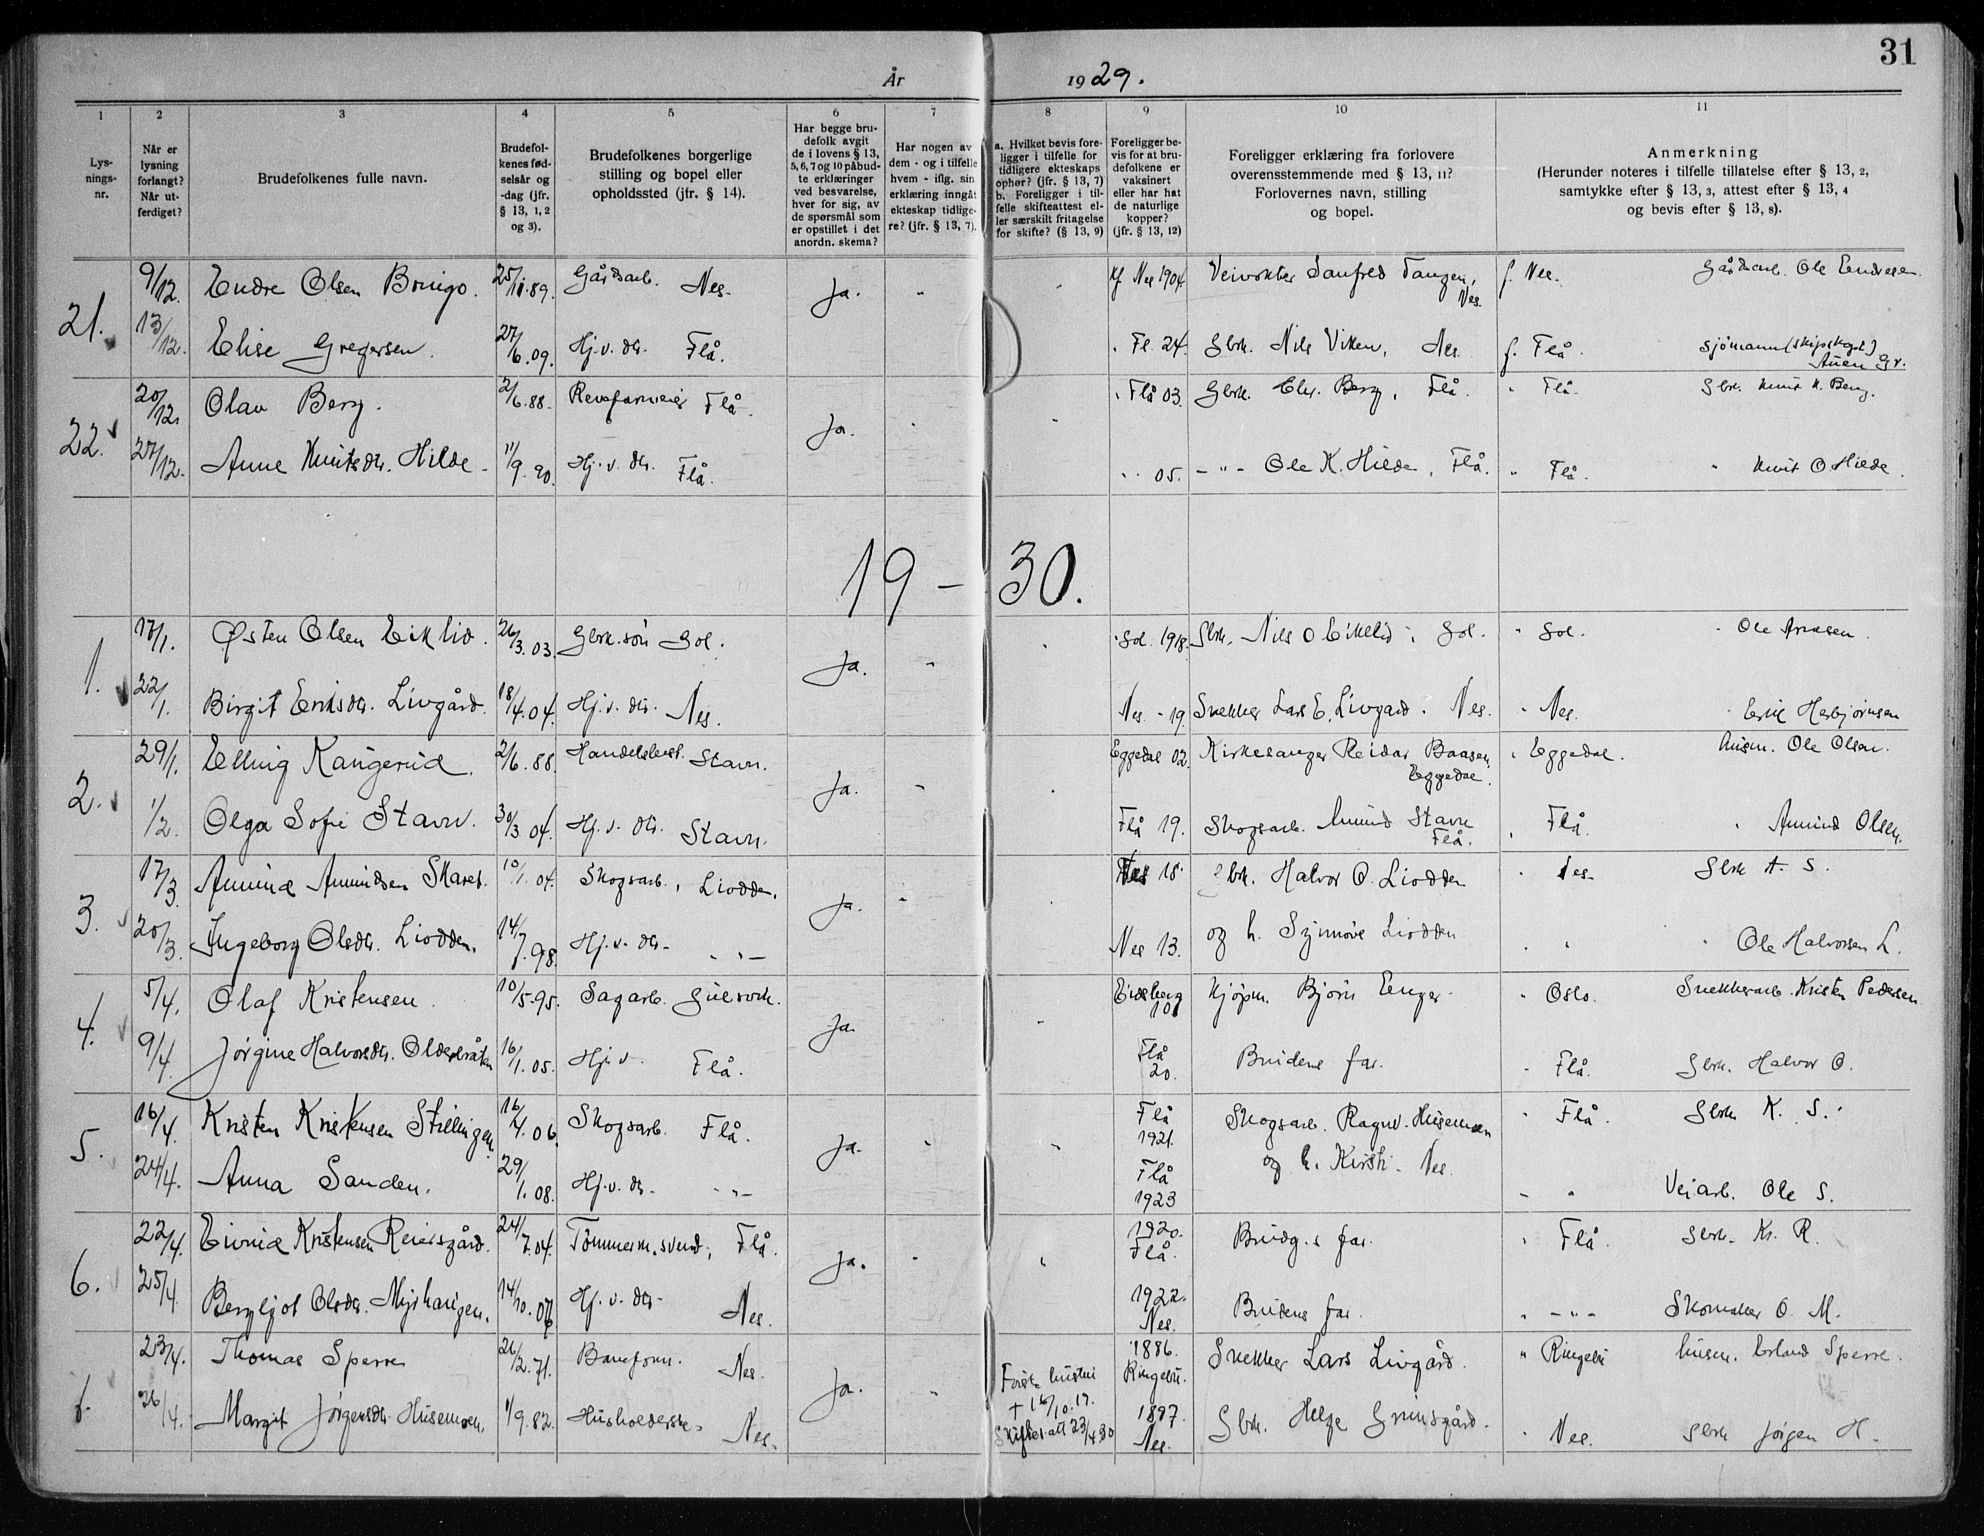 31
År 1929.
1 2 3 4 5 6 7 8 9 10 11
Lys-
nings-
nr.
Når er
lysning
forlangt?
Når ut-
ferdiget?
Brudefolkenes fulle navn.
Brudefol-
kenes fød-
selsår og
-dag (jfr.
§ 13, 1, 2
og 3).
Brudefolkenes borgerlige
stilling og bopel eller
opholdssted (jfr. § 14).
Har begge bru-
defolk avgit
de i lovens § 13,
5, 6, 7 og 10 påbud-
te erklæringer
ved besvarelse,
hver for sig, av
de spørsmål som
er opstillet i det
anordn. skema?
Har nogen av
dem - og i tilfelle
hvem - iflg. sin
erklæring inngåt
ekteskap tidlige-
re? (jfr. § 13, 7).
a. Hvilket bevis fore-
ligger i tilfelle for
tidligere ekteskaps
ophør? (jfr. § 13, 7)
b. Foreligger i til-
felle skifteattest el-
ler særskilt fritagelse
for skifte? (§ 13, 9)
Foreligger be-
vis for at bru-
defolkene er
vaksinert
eller har hat
de naturlige
kopper?
(jfr. § 13, 12)
Foreligger erklæring fra forlovere
overensstemmende med § 13, 11?
Forlovernes navn, stilling
og bopel.
Anmerkning
(Herunder noteres i tilfelle tillatelse efter § 13, 2,
samtykke efter § 13, 3, attest efter § 13, 4
og bevis efter § 13, 8).
21. 9/12. Endre Olsen Bringo. 25/11.89. Gårdsarb. Nes. Ja. " Kf Nes 1904 Veivokter Sanfred Tangen, Nes. f. Nes. Gårdsarb. Ole Endresen
13/12. Elise Gregersen. 27/6.09. Hj.v. dtr. Flå. " Fl. 24. Gbrk. Nils Viken, Nes f. Flå. Sjömann
22. 20/12. Olav Berg. 2/6.88. Flå. Ja. " Flå 03. Gbrk. Berg, Flå. " Flå. Gbrk. Knut K. Berg.
27/12. Anne Knutsdtr. Hilde 11/9.90. Hj.v. dtr. Flå. " 05. - " - Ole K. Hilde, Flå. " Flå. " Knut O Hilde.
19 - 30.
1. 17/1. Østen Olsen Eiklid. 26/3.03. Gbrk.sön Gol. Ja. " Gol. 1918. Gbrk. Nils O Eiklid, Gol. " Gol. " Ole
22/1. Birgit Eriksdtr. Livgård. 18/4.04. Hj.v. dtr. Nes. Nes. - 19. Snekker Lars E. Livgard. Nes. " Nes. " Erik Herbjörnsen
2. 29/1. Elling Kaugerud. 2/6.88. Handelsbest. Stavn. Ja. " Eggedal 02. Kirkesanger Reidar Baasen, Eggedal. " Eggedal. Husm. Ole Olsen.
1/2. Olga Sofie Stavn. 30/3.04. Hj.v. dtr. Stavn. Flå 19. Skogsarb. Amund Stavn Flå. " Flå. " Amund Olsen.
3. 17/3. Amund Amundsen Skares. 10/1.04. Skogsarb. Liodden. Ja. " Nes 18. Gbrk. Halvor O. Liodden " Nes. Gbrk A. S.
20/3. Ingeborg Olsdtr. Liodden. 14/7.98. Hj.v. dtr. - " - Nes 13. og h. Synnöve Liodden " " " Ole Halvorsen L.
4. 5/4. Olaf Kristensen. 10/5.95. Sagarb. Gulsvik. Ja. Eidsberg 10. Kjöpm. Björn Enger. " Oslo. Snekkerarb. Kristen Pedersen
9/4. Jörgine Halvorsdtr. Olderbråten 16/1.05. Hj.v. Flå. Flå 20. Brudens far. " Flå. Gbrk. Halvor O.
5. 16/4. Kristen Kristensen Stillingen 16/4.06. Skogsarb. Flå. Ja. " Flå 1921. Skogsarb. Ragnv. Husemoen " Flå. Gbrk K. S.
24/4. Anna Sanden. 29/1.08. Hj.v. dtr. - " - Flå 1923 og h. Kirsti. Nes. " " Veiarb. Ole S.
6. 22/4. Eivind Kristensen Reiersgård. 24/7.04. Tömmerm.svend, Flå. Ja. " 1920. Flå. Brudg.s far. " Flå. Gbrk. Kr. R.
25/4 Bergljot Olsdtr. Myrhaugen. 14/10. Hj.v. dtr. Nes. 1922. Nes. Brudens far. " - " - Skomaker O. M.
23/4. Thomas Sperre 26/2.71. Baneform. Nes. Ja. " Förste hustru + 16/10.17. 1886. Ringebu. Snekker Lars Livgård. " Ringebu Husm. Erland Sperre.
26/4. Margit Jörgensdtr. Husemoen. 1/9.82. Husholderske. Nes. Skifteatt 23/4 30 1897. Nes. Gbrk. Helge Grimsgård. " Nes. Gbrk Jörgen H.